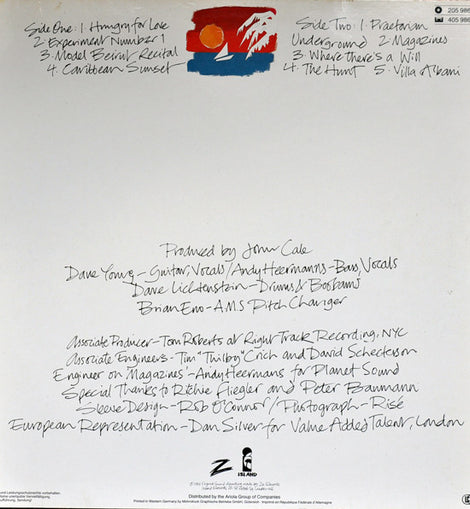 Side One: 1 Hungry for Love
2 Experiment Number 1
3. Model Beirut Recital
4. Caribbean Sunset
Side Two: 1. Praetorian
Underground 2. Magazines
3. Where there's a Will
4. The Hunt 5. Villa Albani
205 986
405 986
Produced by John Cale
Dave Young - Guitar, Vocals / Andy Heermanns - Bass, Vocals
Dave Lichtenstein - Drums & Boobams
Brian Eno - AMS Pitch Changer
Associate Producer - Tom Roberts at Right Track Recording, NYC
Associate Engineers - Tim "Thilboy" Crich and David Schecterson
Engineer on 'Magazines' - Andy Heermans for Planet Sound
Special Thanks to Richie Fliegler and Peter Baumann
Sleeve Design - Rob O'Connor / Photograph - Risé
European Representation - Dan Silver for Value Added Talent, London
Z
ISLAND
Distributed by the Ariola Group of Companies